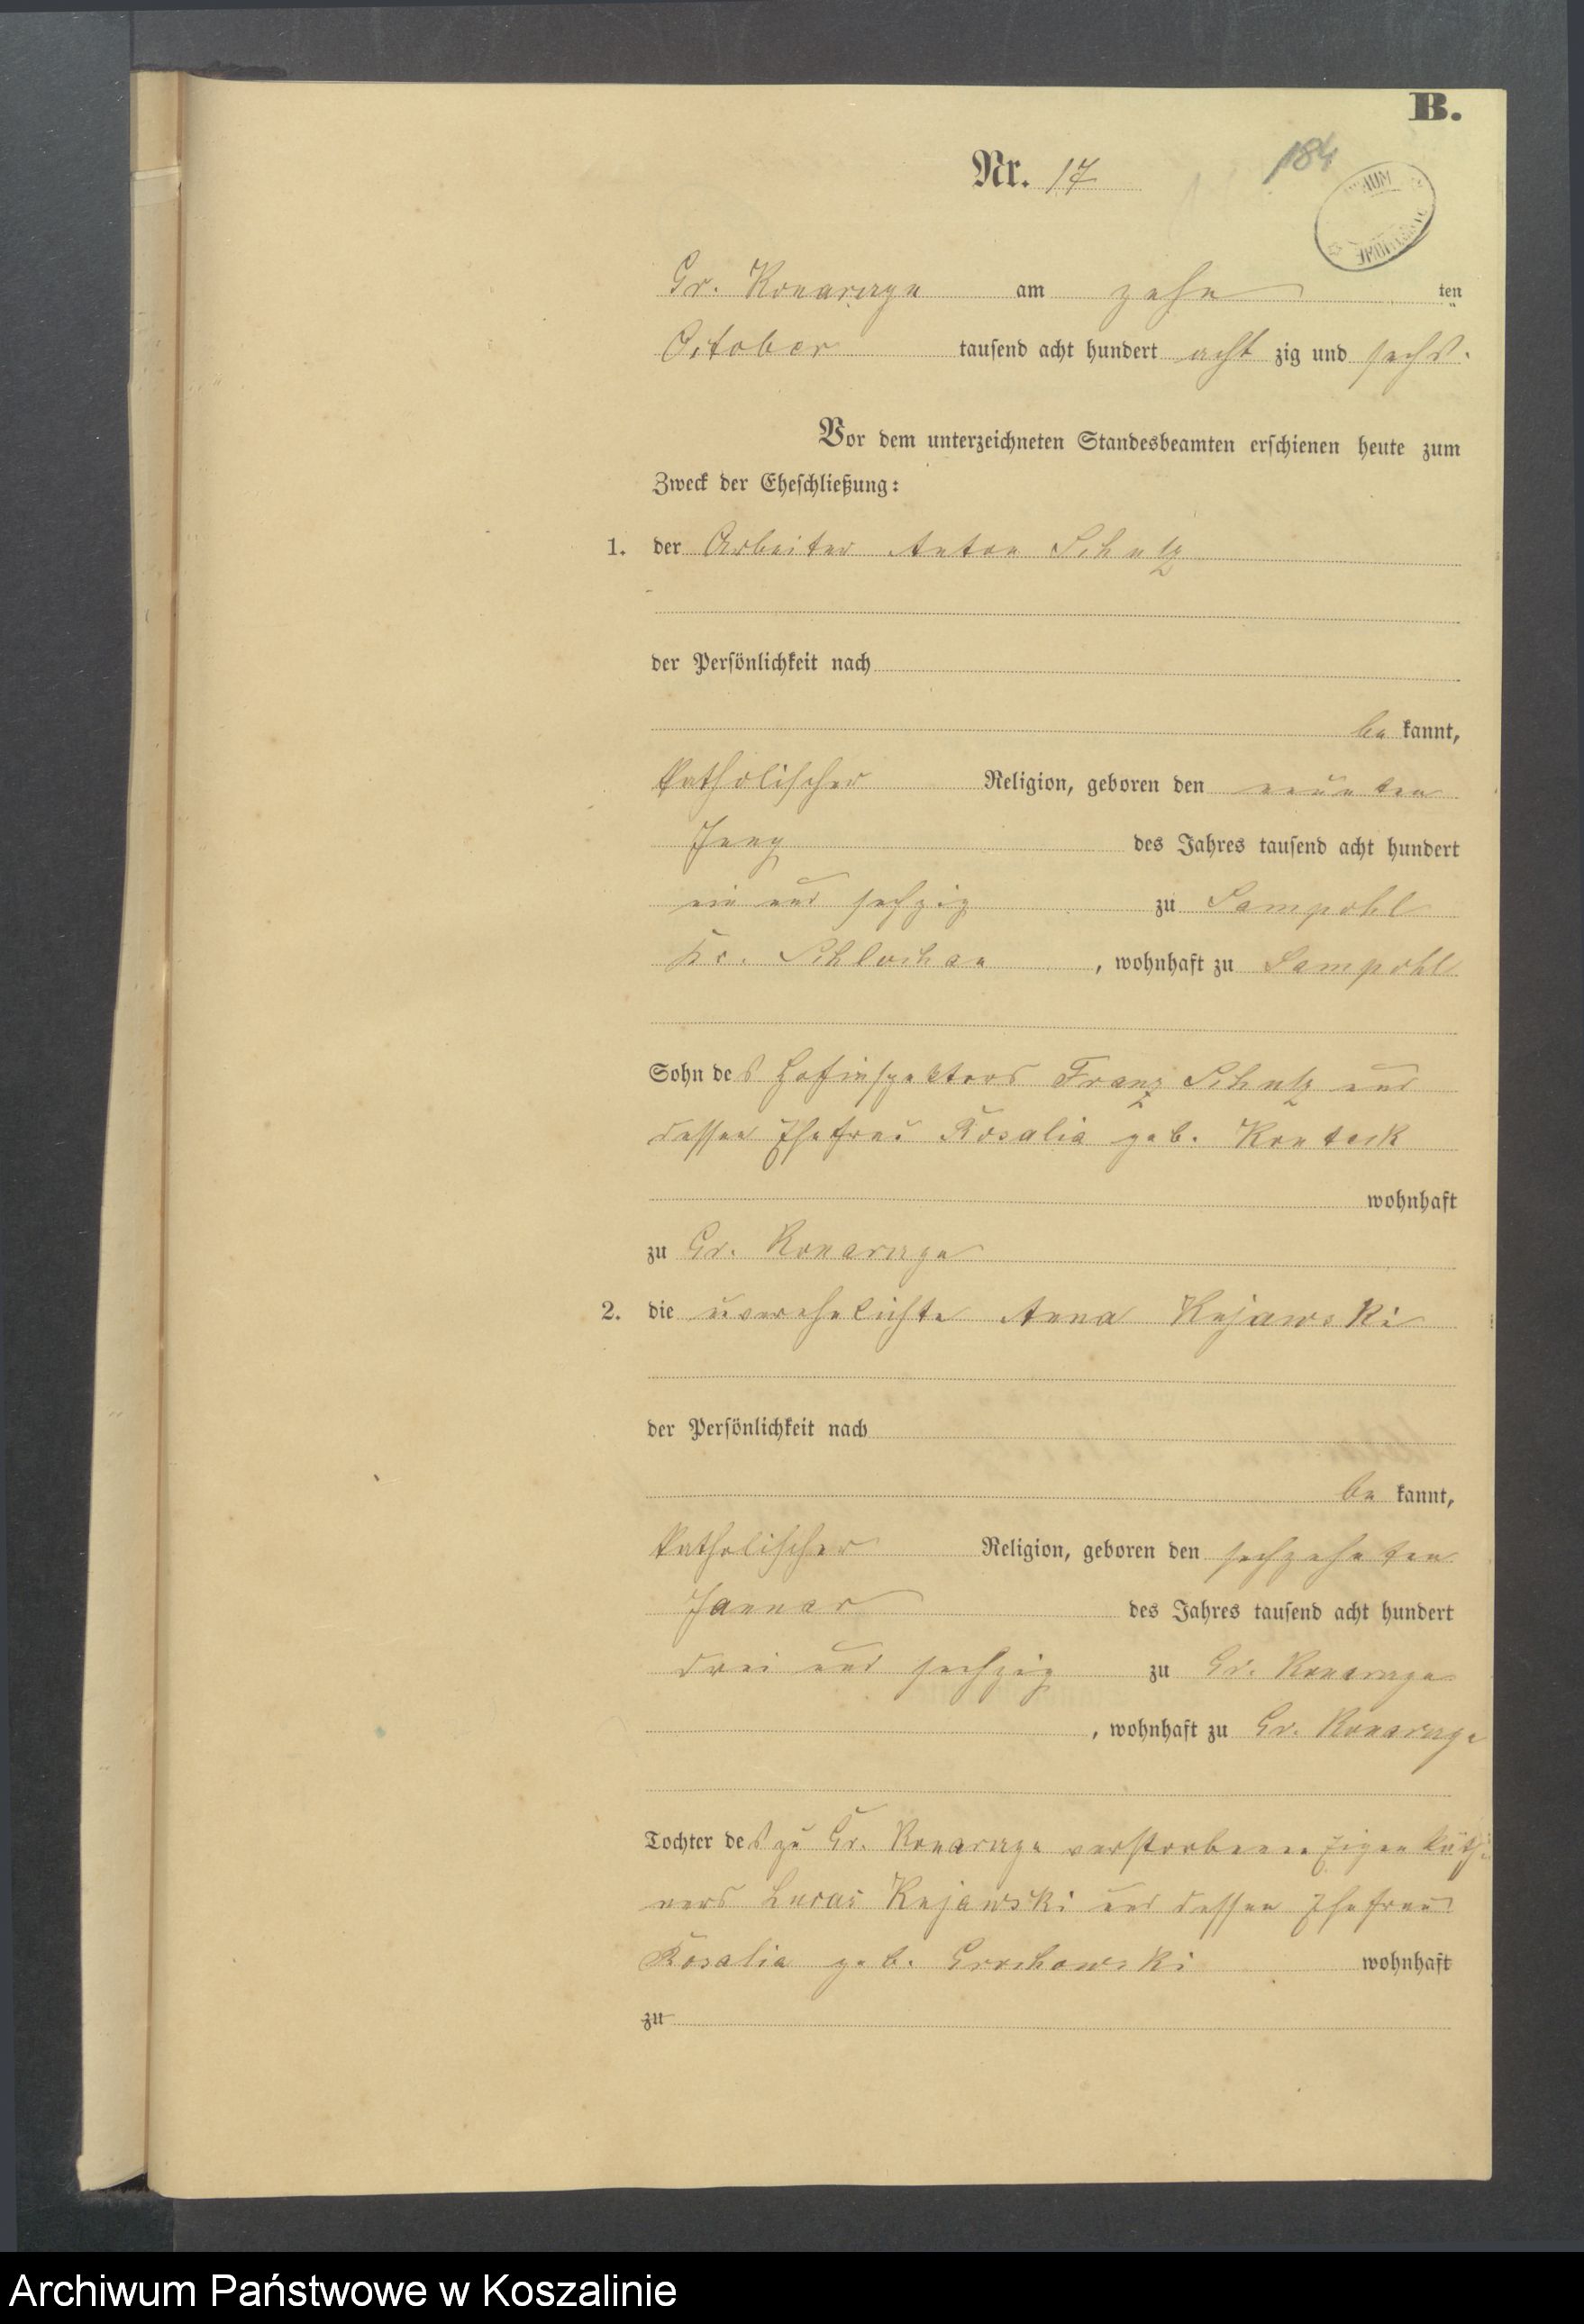 B.
Nr. 17
184
Gr. Konarczyn am zehn ten
October tausend acht hundert acht zig und sechs.
Vor dem unterzeichneten Standesbeamten erschienen heute zum
Zweck der Eheschließung:
1. der Arbeiter Anton Schulz
der Persönlichkeit nach
be kannt,
katholischer Religion, geboren den neunten
des Jahres tausend acht hundert
ein und sechzig zu Sampohl
Kr. Schlochau, wohnhaft zu Sampohl
Sohn des Hofinspektors Franz Schulz und
dessen Ehefrau Rosalia geb.
wohnhaft
zu Gr. Konarczyn
2. die unverehelichte Anna Kujawski
der Persönlichkeit nach
be kannt,
katholischer Religion, geboren den sechzehnten
Januar des Jahres tausend acht hundert
drei und sechzig zu Gr. Konarczyn
, wohnhaft zu Gr. Konarczyn
Tochter des zu Gr. Konarczyn verstorbenen Eigenkäth-
ners Lucas Kujawski und dessen Ehefrau
Rosalia geb. Grochowski wohnhaft
zu
Archiwum Państwowe w Koszalinie